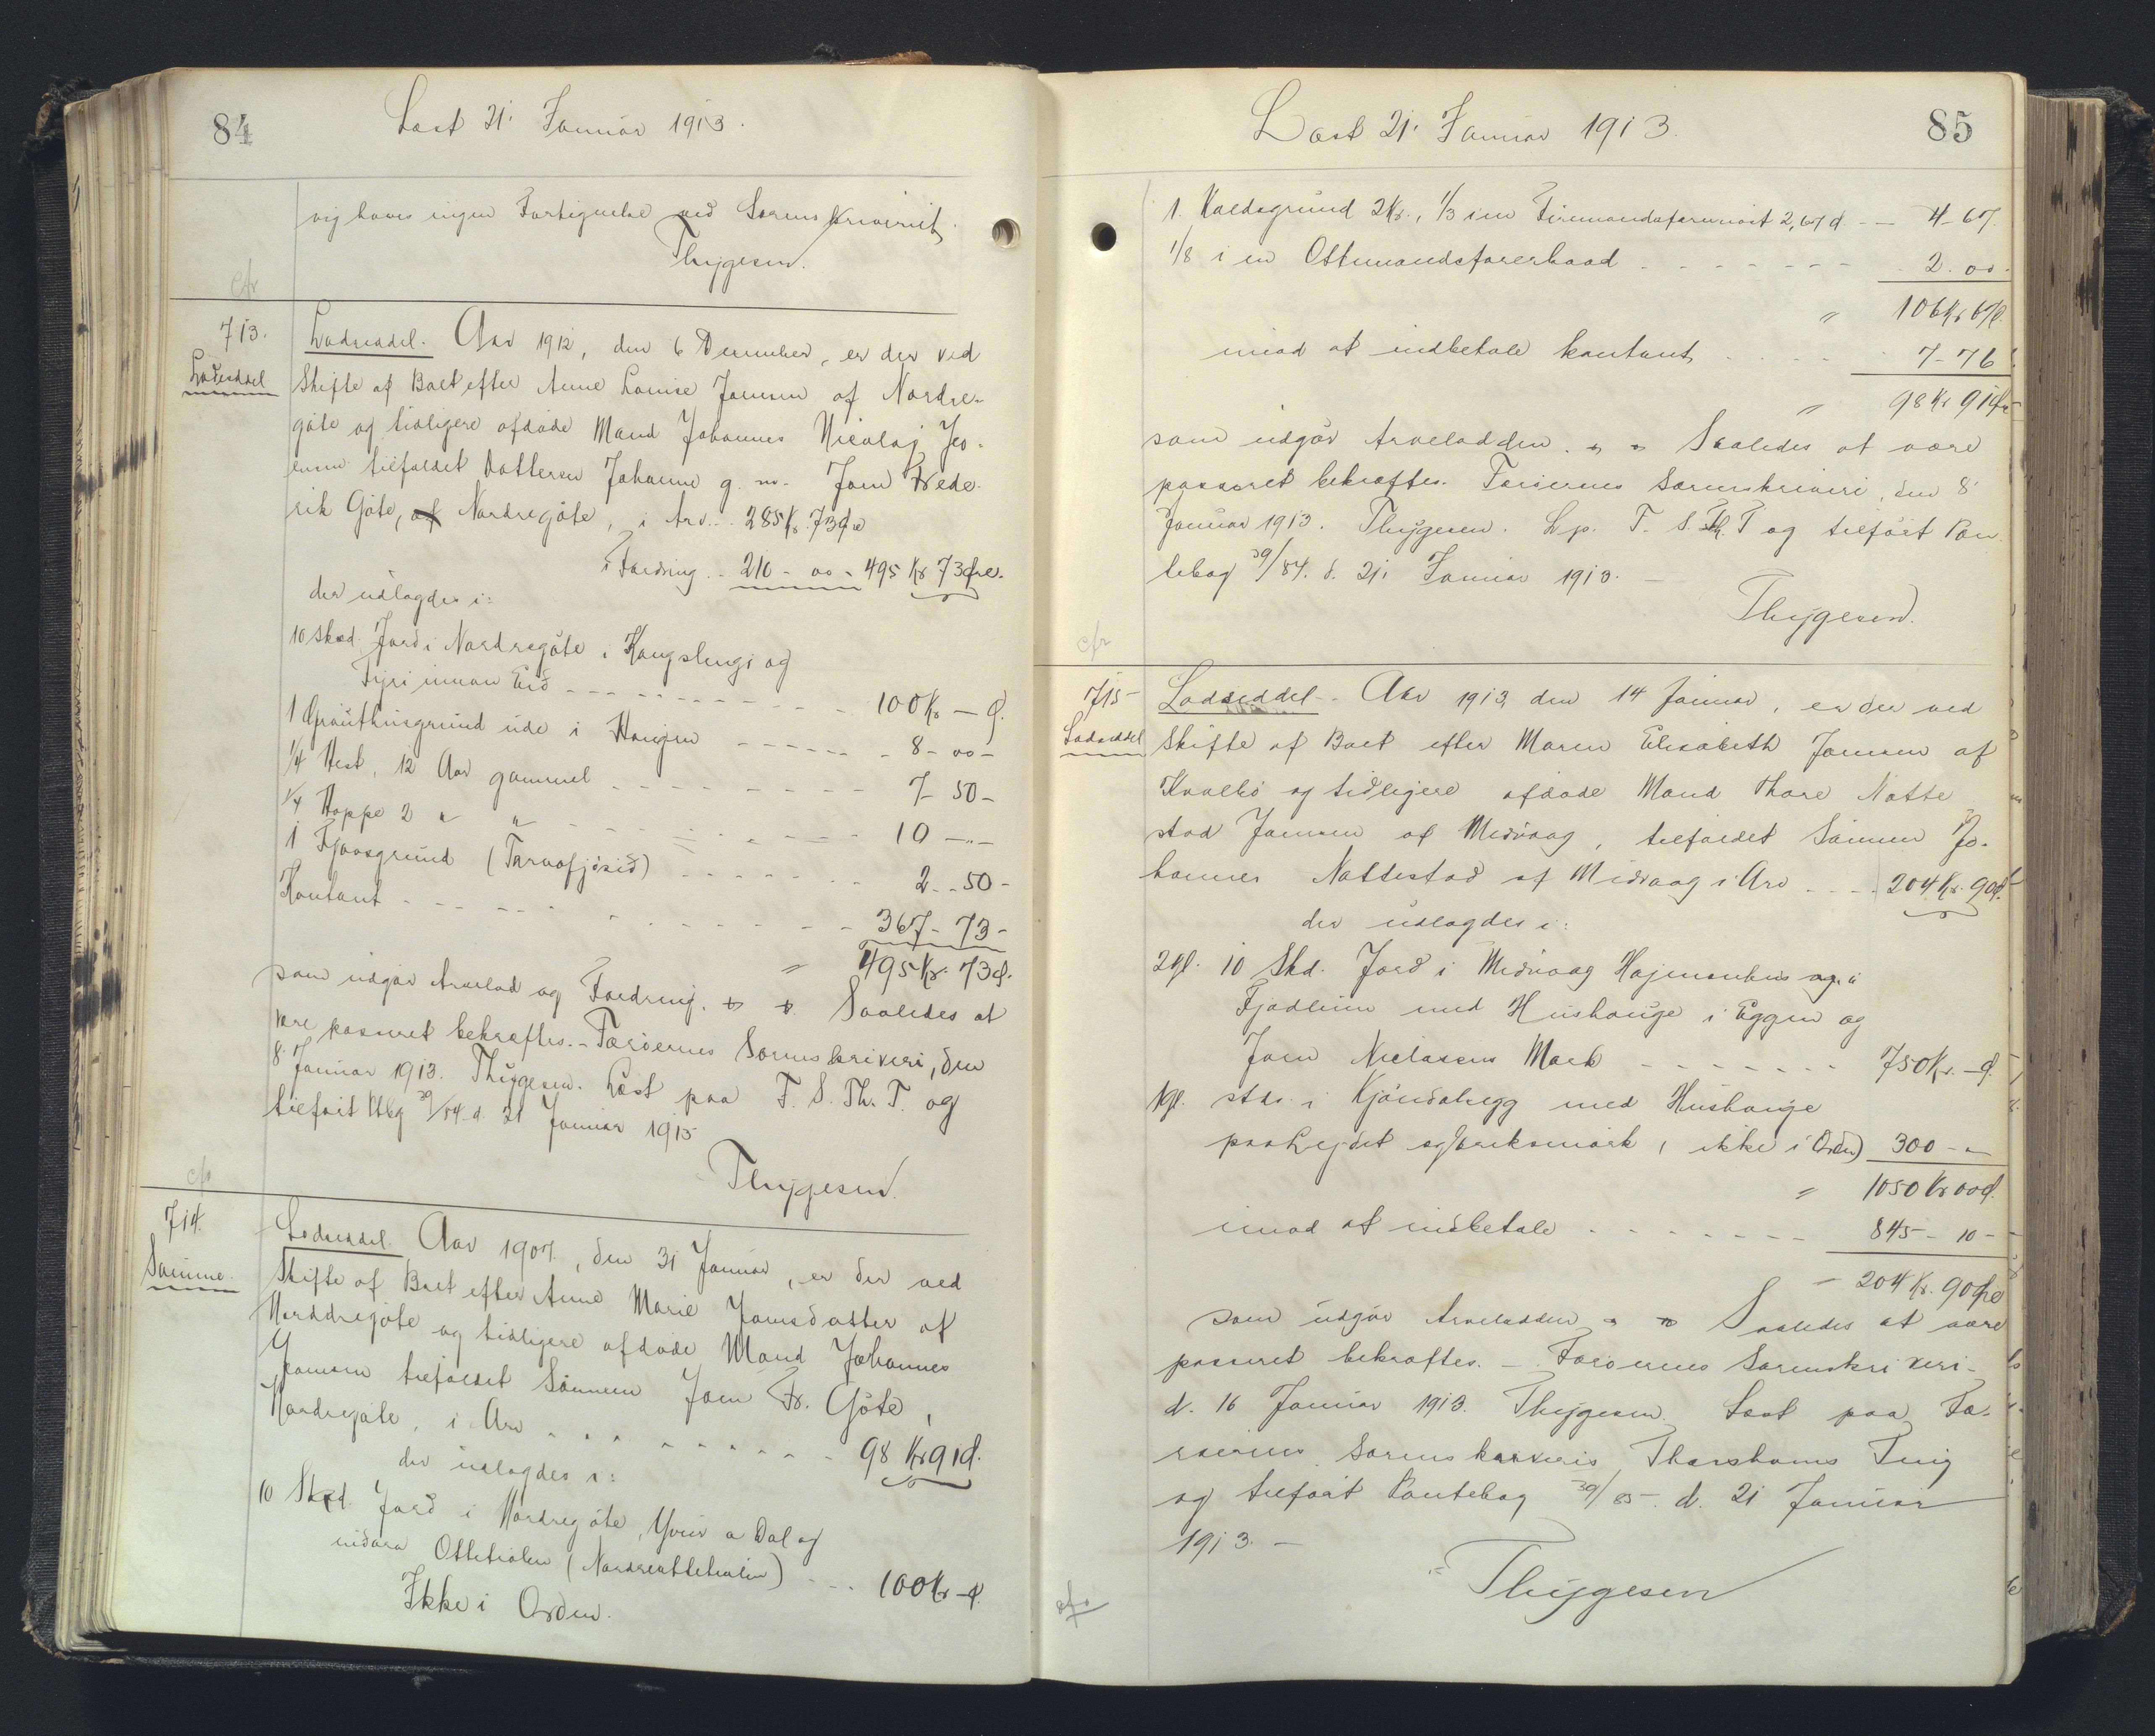 84
Læst 21' Januar 1913.
vighaves ingen Fortegnelse ved Sorenskriveriet.
Thygesen.
cfr
713.
Lodseddel
Lodseddel. Aar 1912, den 6 December, er der ved
Skifte af Boet efter Anne Lovise Joensen af Nordre-
gøte og tidligere afdøde Mand Johannes Nicolaj Jo-
ensen tilfaldet Datteren Johanne g. m. Joen Frede-
rik Gøte, af Nordregøte, i Arv... 285 Kr. 73 Øre
i Fordring.. 210 - 00 - 495 Kr 73 Øre.
der udlagdes i:
10 Skd. Jord i Nordregøte i Kongslengi og
Fyri innan Eid - - - 100 Kr — Ø.
1 Grouthusgrund ude i Haugen - - - 8 - 00 -
1/4 Hest, 12 Aar gammel - - - 7 - 50 -
1/4 Hoppe 2 " " - - - 10 - " -
1 Fjoosgrund (Tarvafjósið) - - - 2 - 50 -
Kontant - - - 367 - 73 -
" 495 Kr. 73 Ø.
som udgør Arvelod og Fordring. Saaledes at
være passeret bekræftes. - Færøernes Sorenskriveri, den
8' Januar 1913. Thygesen. Læst paa F. S. Th. T. og
tilført Ptbg 39/84 d. 21 Januar 1913
Thygesen.
cfr
714.
Samme.
Lodseddel. Aar 1907, den 31 Januar, er der ved
Skifte af Boet efter Anne Marie Joensdatter af
Norddregøte og tidligere afdøde Mand Johannes
Joensen tilfaldet Sønnen Joen Fr. Gøte,
Nordregøte, i Arv - - - 98 Kr 91 Ø.
der udlagdes i:
10 Skd. Jord i Nordregøte, Yvir a Dal og
nidara Ottetialen (Nordreottetialin) - - - 100 Kr - Ø.
Ikke i Orden.
85
Læst 21' Januar 1913.
1. Naldsgrund 2 Kr., 1/3 i en Firemandsfarernøst 2,67 Ø. - - 4 - 67.
1/8 i en Ottemandsfarerbaad - - - 2. 00.
" 106 Kr 67 Ø.
imod at indbetale kontant - - - 7 - 76
" 98 Kr 91 Øre
som udgør Arvelodden. Saaledes at være
passeret bekræftes. Færøernes Sorenskriveri, den 8'
Januar 1913. Thygesen. L. p. F. S. Th. T og tilført Pan-
tebog 39/84. d. 21' Januar 1913. -
Thygesen.
cfr
715
Lodseddel
Lodseddel - Aar 1913, den 14 Januar, er der ved
Skifte af Boet efter Maren Elisabeth Joensen af
Kvalbø og tidligere afdøde Mand Thore Natte
stad Joensen af Midvaag, tilfaldet Sønnen Jo-
hannes Nattestad af Midvaag i Arv - - - 204 Kr. 90 Ø.
der udlagdes i:
2 gl. 10 Skd. Jord i Midvaag Hojmenhus og i
Fjødleim med Hushauge i Eggen og
Joen Niclasens Mark - - - 750 Kr. - Ø.
1 gl. stds. i Kjøndabygg med Hushauge
paa Lejdet og Jøriksmørk, ikke i Orden) 300 - "
" 1050 Kr 00 Ø.
imod at indbetale - - - 845 - 10 -
- 204 Kr. 90 Øre
som udgør Arvelodden. Saaledes at være
passeret bekræftes. - Færøernes Sorenskriveri -
d. 16 Januar 1913. Thygesen. Læst paa Fæ-
røernes Sorenskriveris Thorshavns Ting
og tilført Pantebog 39/85. d. 21 Januar
1913. -
Thygesen
cfr